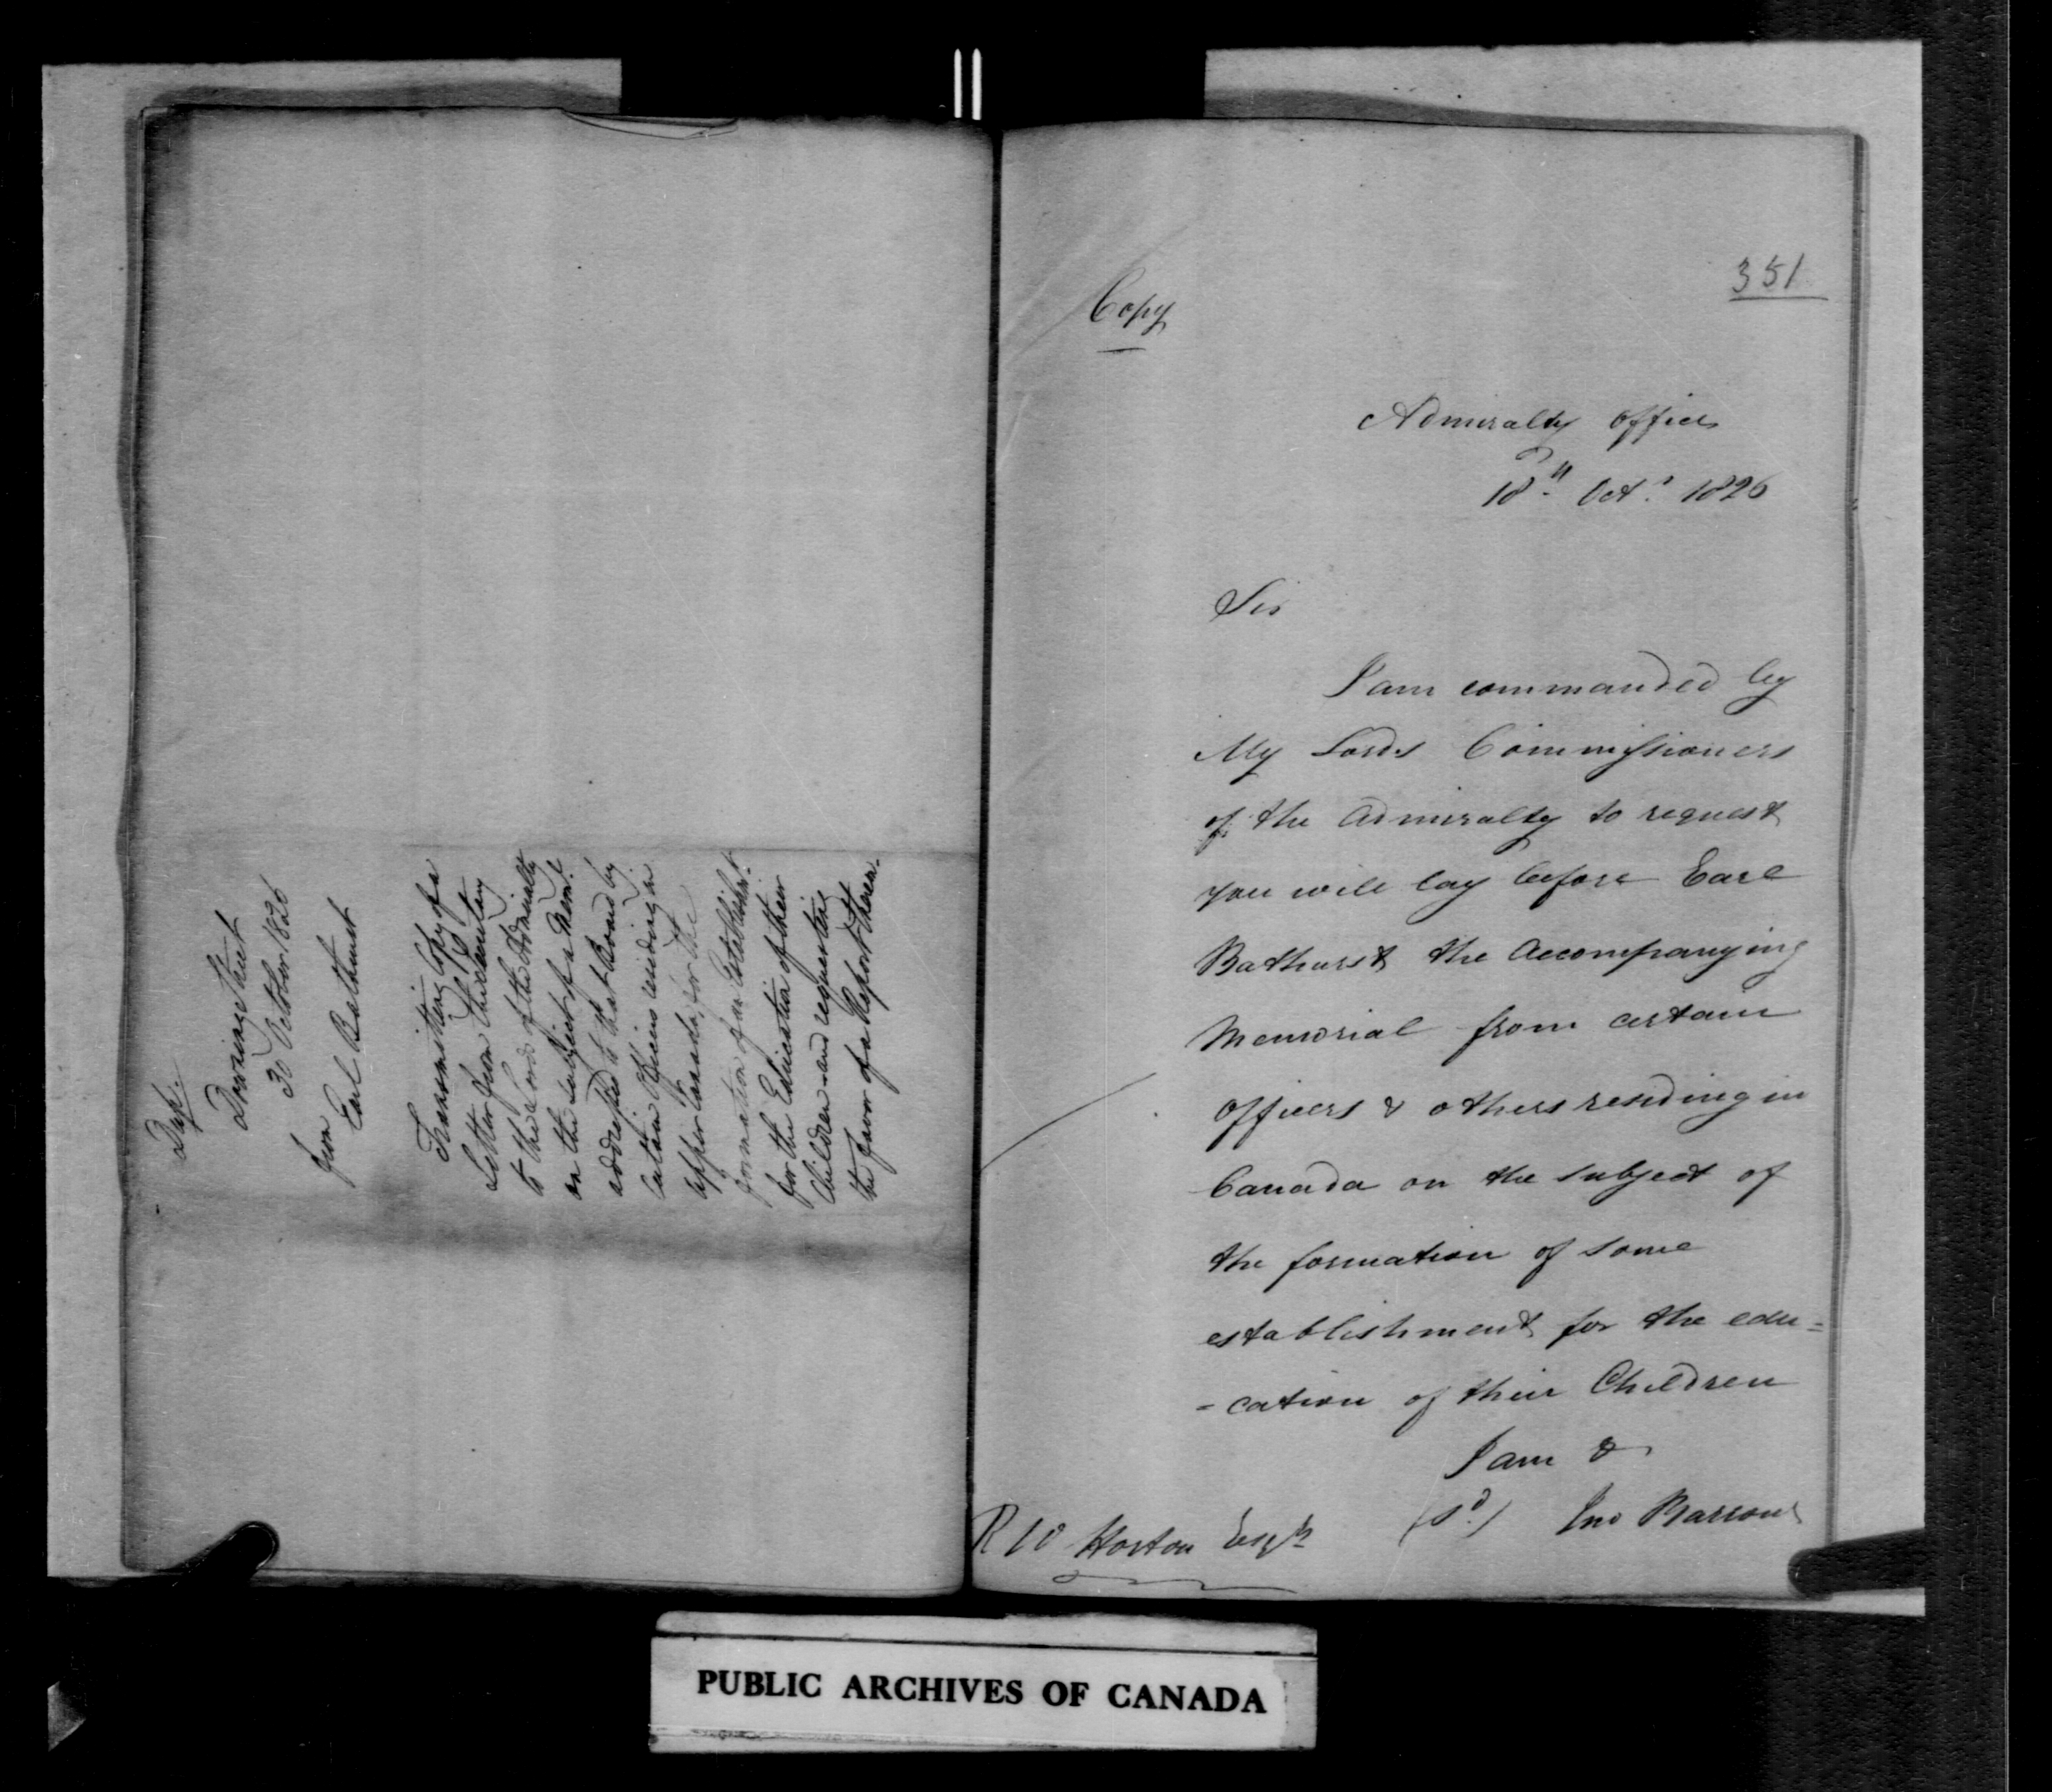 Desp.
Downing Street
30 October 1826
from
Earl Bathurst
Transmitting Copy of a
Letter from the Secretary
to the Lords of the Admiralty
on the subject of a Meml.
addressed to that Board by
certain Officers residing in
Upper Canada, for the
formation of an Establishmt.
for the Education of their
Children and requesting
the favor of a Report thereon.
351
Copy
Admiralty Office
18th Octr. 1826
Sir
I am commanded by
My Lords Commissioners
of the Admiralty to request
you will lay before Earl
Bathurst the Accompanying
Memorial from certain
Officers & others residing in
Canada on the subject of
the formation of some
establishment for the edu=
=cation of their Children
I am &
(sd.) Jno Barrow
R W Horton Esqre
PUBLIC ARCHIVES OF CANADA